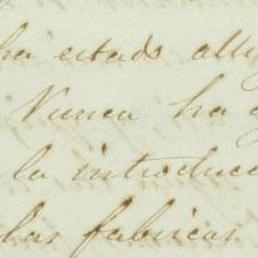 ha estado alli
Nunca ha
la introducc
las fabricas